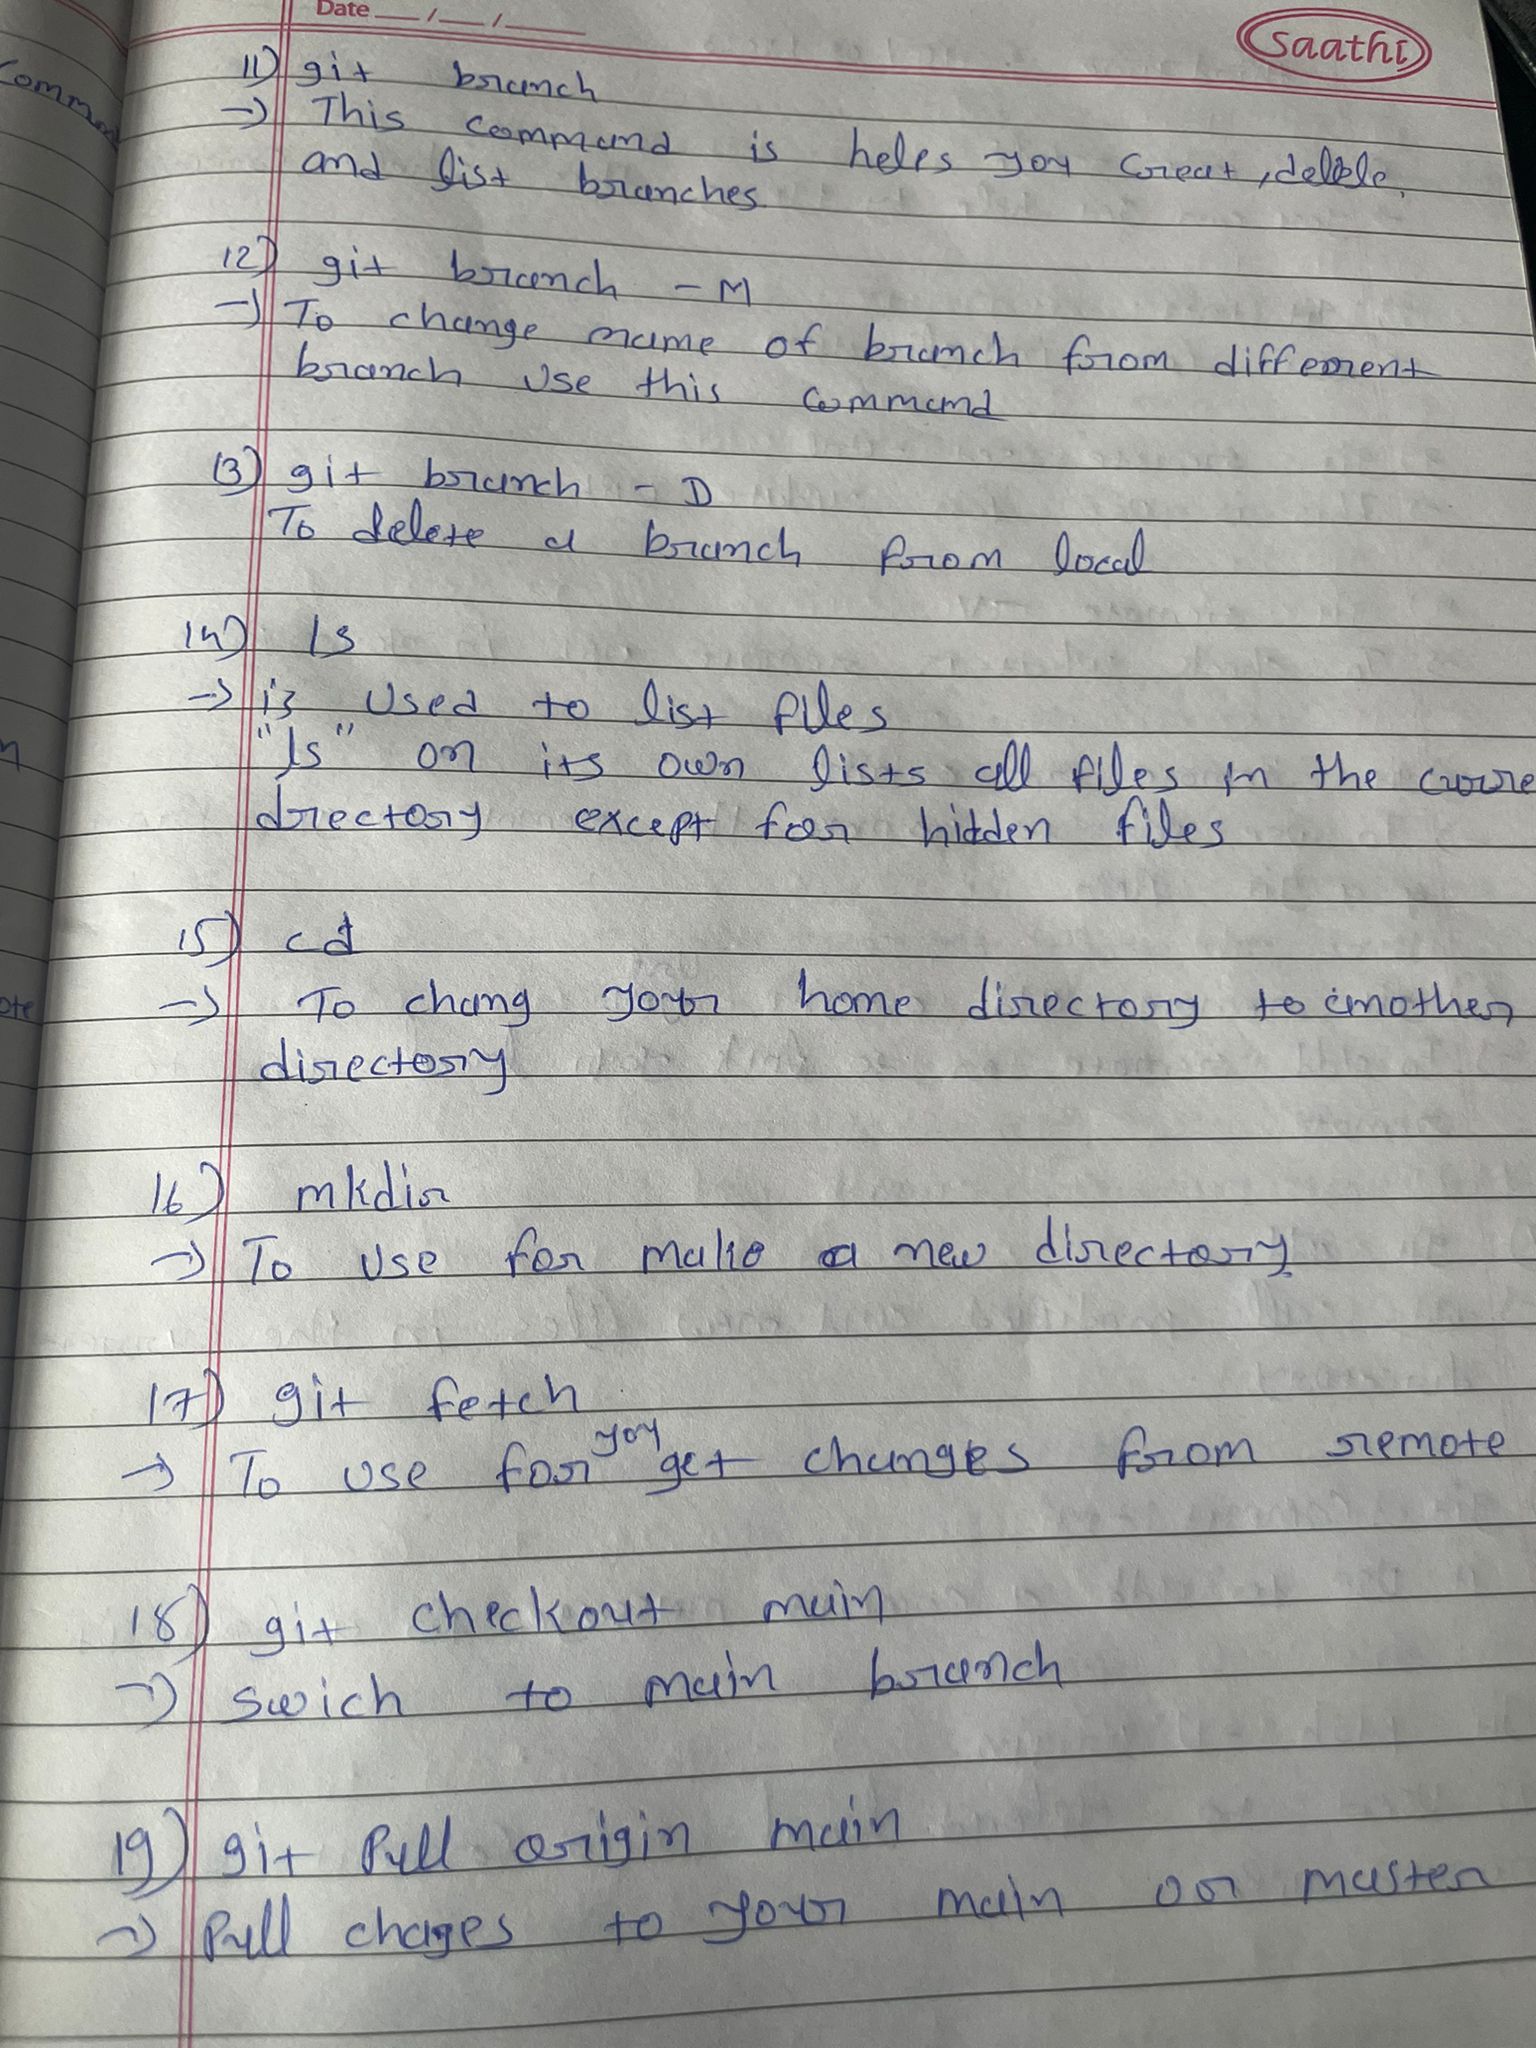 Date __/__/__
saathi
11) git branch
→ This command is heles you Creat, delete,
and list branches.
12) git branch - M
→ To change name of branch from different
branch use this command
13) git branch - D
To delete a branch from local
14) ls
→ is used to list files
"ls" on its own lists all files in the curre
directory except for hidden files
15) cd
→ To chang your home directory to another
directory
16) mkdir
→ To use for make a new directory.
17) git fetch
→ To use for you get changes from remote
18) git checkout main
→ swich to main branch
19) git Pull origin main
→ Pull chages to your main or master